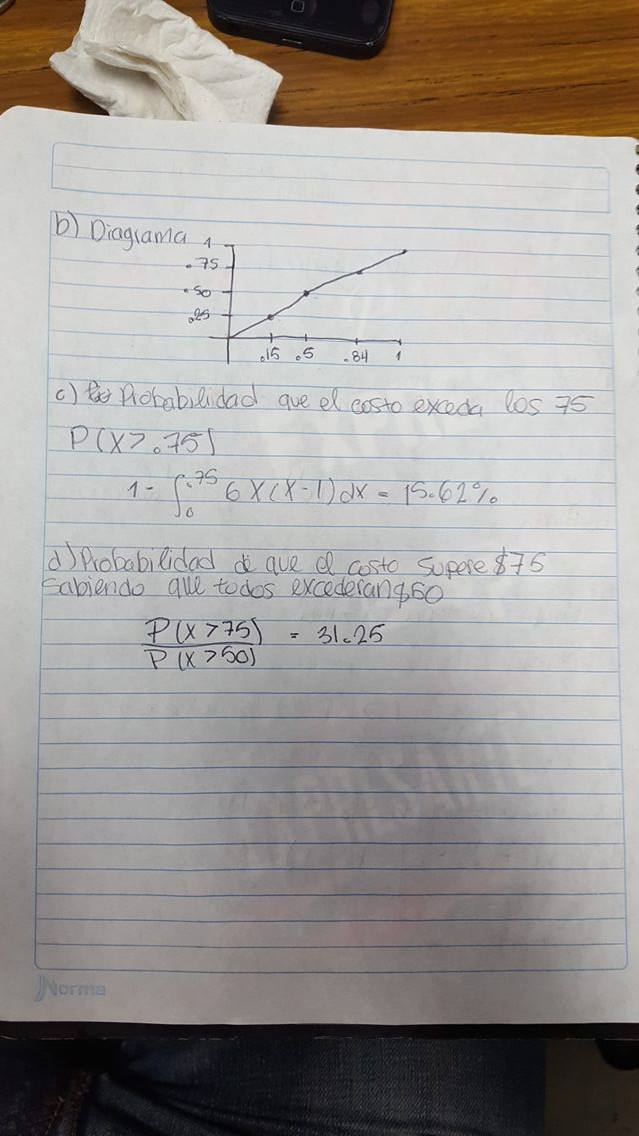 b) Diagrama
1
.75
.50
.25
.15 .5 .84 1
c) Probabilidad que el costo exceda los 75
P(X>.75)
1- ∫₀^.75 6X(X-1)dx = 15.62%
d) Probabilidad de que el costo supere $75
sabiendo que todos excederan $50
P(X>75) / P(X>50) = 31.25
Norma